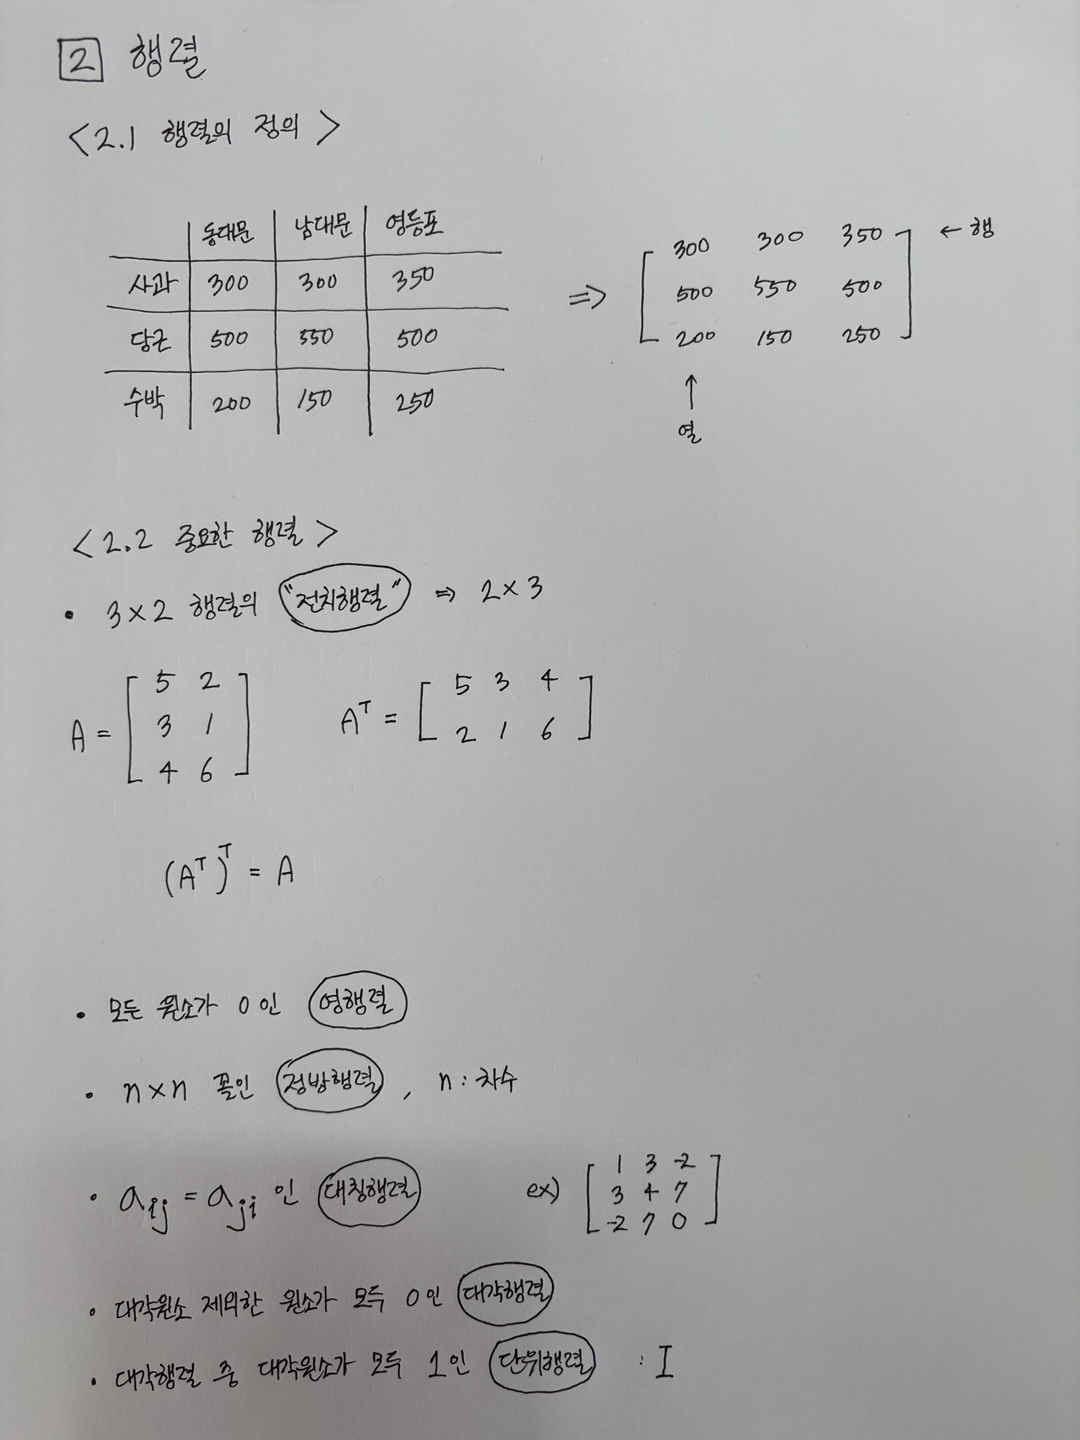 2 행렬
<2.1 행렬의 정의>
동대문 남대문 영등포
사과 300 300 350
당근 500 550 500
수박 200 150 250
⇒
300 300 350 ← 행
500 550 500
200 150 250
↑
열
<2.2 중요한 행렬>
• 3×2 행렬의 "전치행렬" ⇒ 2×3
A = [5 2
3 1
4 6]
Aᵀ = [5 3 4
2 1 6]
(Aᵀ)ᵀ = A
• 모든 원소가 0인 영행렬
• n×n 꼴인 정방행렬, n : 차수
• aij = aji 인 대칭행렬
ex) [1 3 -2
3 4 7
-2 7 0]
• 대각원소 제외한 원소가 모두 0인 대각행렬
• 대각행렬 중 대각원소가 모두 1인 단위행렬 : I